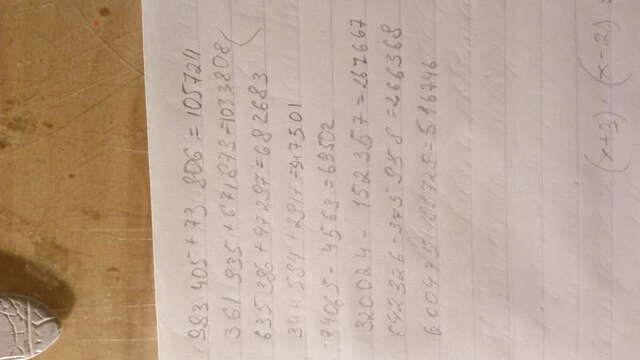 983 405 + 73 806 = 105724
361 935 + 671 873 = 1033808
635 386 + 47 297 = 682683
344 584 + 2917 = 347501
74065 - 4563 = 69502
320024 - 152 357 = 267667
642 326 - 375 958 = 266368
= 516746
(x+3) · (x-2) =